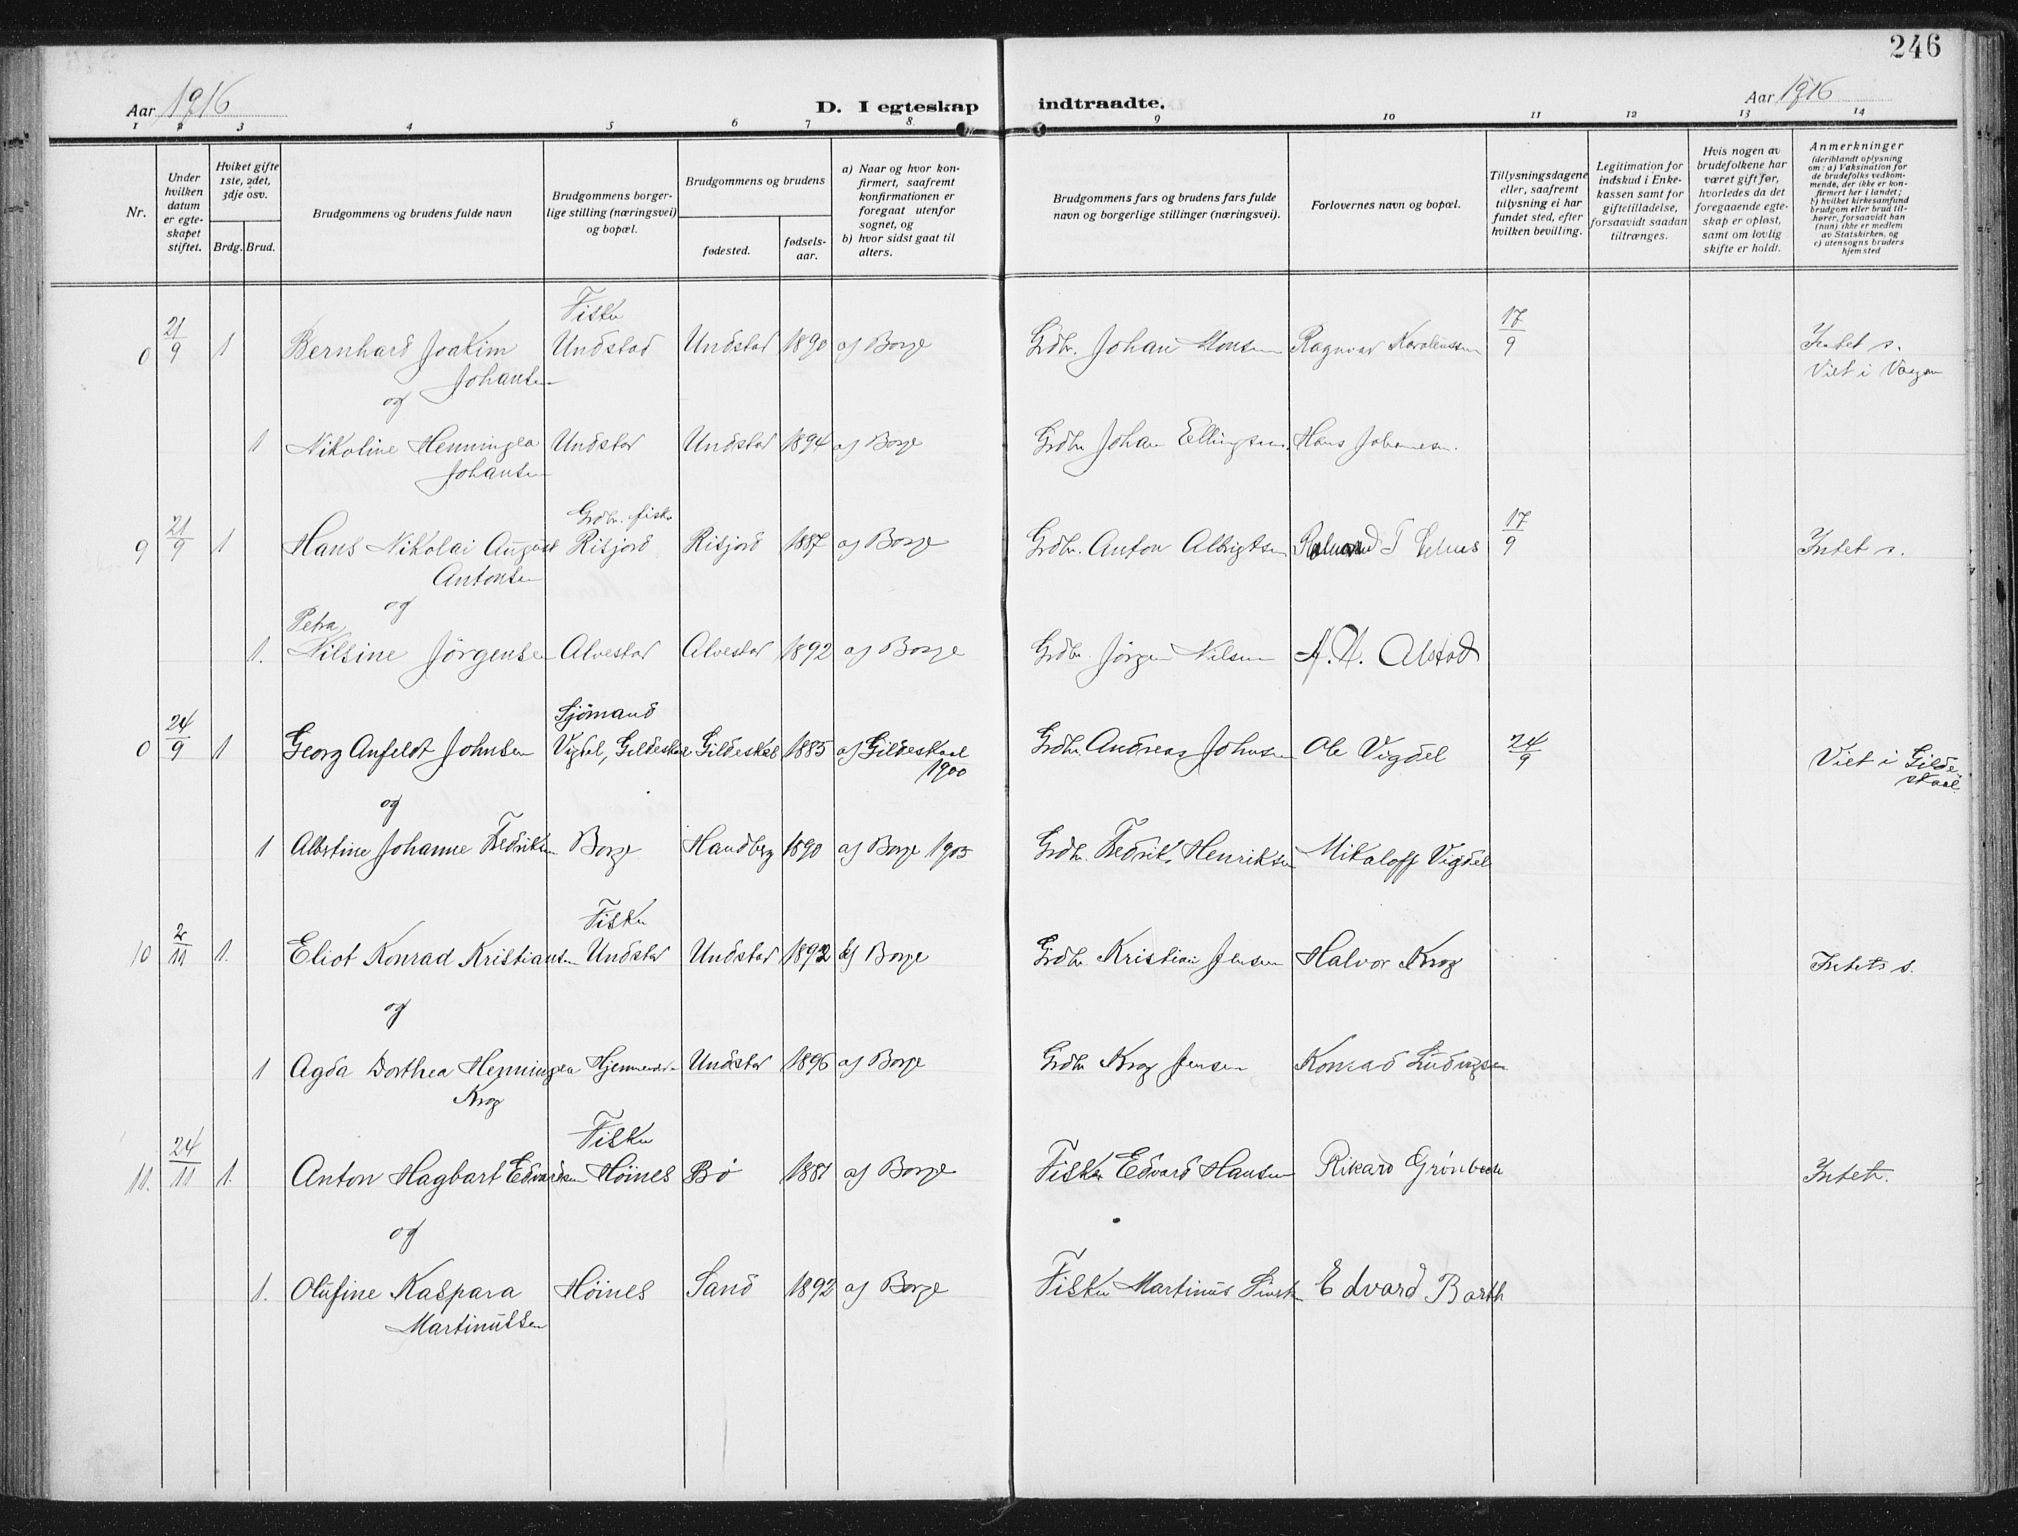 246
Aar 1916
D. I egteskap indtraadte.
Aar 1916
1 2 3 4 5 6 7 8. 9 10 11 12 13 14
Nr.
Under hvilken datum er egteskapet stiftet.
Hviket gifte 1ste, 2det, 3dje osv.
Brdg. Brud.
Brudgommens og brudens fulde navn
Brudgommens borgerlige stilling (næringsvei) og bopæl.
Brudgommens og brudens
fødested.
fødselsaar.
a) Naar og hvor konfirmert, saafremt konfirmationen er foregaat utenfor sognet, og
b) hvor sidst gaat til alters.
Brudgommens fars og brudens fars fulde navn og borgerlige stillinger (næringsvei).
Forlovernes navn og bopæl.
Tillysningsdagene eller, saafremt tillysning ei har fundet sted, efter hvilken bevilling.
Legitimation for indskud i Enkekassen samt for giftetilladelse, forsaavidt saadan tiltrænges.
Hvis nogen av brudefolkene har været gift før, hvorledes da det foregaaende egteskap er opløst, samt om lovlig skifte er holdt.
Anmerkninger (deriblandt oplysning om: a) Vaksination for de brudefolks vedkommende, der ikke er konfirmert her i landet; b) hvilket kirkesamfund brudgom eller brud tilhører, forsaavidt han (hun) ikke er medlem av Statskirken, og c) utensogns bruders hjemsted
Fisker
0 21/9 1 Bernhard Joakim Undstad Undstad 1890 af Borge Grdbr. Johan Monsen Ragnvar Karoliussen 17/9 Intet s.
Johansen Viet i Vaagan
og
1 Nikoline Henningea Undstad Undstad 1894 af Borge Grdbr Johan Ellingsen Hans Johansen.
Johansen
Grdbr. fisker
9 21/9 1 Hans Nikolai August Risjord Risjord 1887 af Borge Grdbr. Anton Albrigtsen 17/9 Intet s.
Antonsen
og
Petra
1. Nilsine Jörgensen Alvestad Alvestad 1892 af Borge Grdbr Jørgen Nilsen A. N. Alstad
Sjömand
0 24/9 1 Georg Anfeldt Johnsen Vigdel, Gildeskaal Gildeskal 1885 af Gildeskaal Grdbr. Andreas Johnsen Ole Vigdel 24/9 Viet i Gilde-
1900 skaal.
og
1 Albertine Johanne Fredriksen Borge Handberg 1890 af Borge 1905 Grdbr. Fredrik Henriksen Mikaloff Vigdel
Fisker
10 2/11 1. Eliot Konrad Kristiansen Undstad Undstad 1892 af Borge Grdbr Kristian Jensen Halvor Krog Intet s.
og
1 Agda Dorthea Henningea Undstad 1896 af Borge Grdbr Krog Jensen Konrad Ludvigsen
Krog
Fisker
11. 24/11 1. Anton Hagbart Edvardsen Höines Bö 1881 af Borge Fisker Edvard Hansen Rikard Grönbech Intet.
og
1. Olufine Kaspara Höines Sand 1892 af Borge Fisker Martinus Edvard Barth
Martinussen